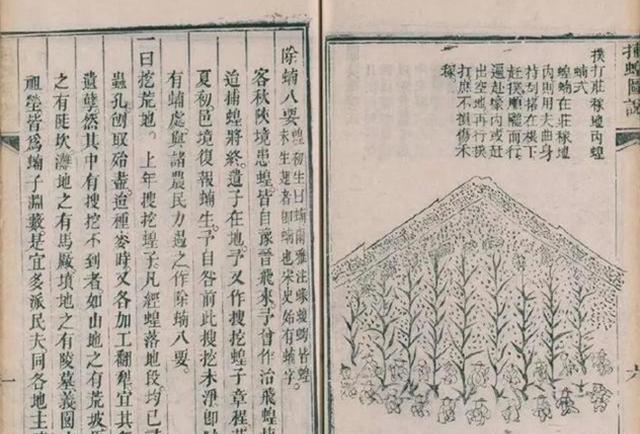 捕蝗圖說
撲打莊稼地內蝗
蝻式
蝗蝻在莊稼地
內則用夫曲身
持刮搭在根下
趕撲順壟而行
逼赴壕內或趕
出空地再行撲
打庶不損傷禾
稼
六
除蝻八要 蝗初生曰蝻爾雅注蝮蜪皆蝗
未生翅者卽蝻也宋史始有蝻字
客秋陝境患蝗皆自豫晉飛來予曾作治飛蝗
道捕蝗將終遺子在地予又作搜挖蝗子章程
夏初邑境復報蝻生予自咎前此搜挖未淨卽
有蝻處與諸農民力過之作除蝻八要
一曰挖荒地。上年搜挖蝗子。凡經蝗落地段均已
蟲孔刨取殆盡迨種麥時。又各加工翻犁宜其
遺孽然其中有搜挖不到者如山地之有荒坡
之有陡坎灘地之有馬厰墳地之有陵墓義園
祖塋皆爲蝻子淵藪是宜多派民夫同各地主
一